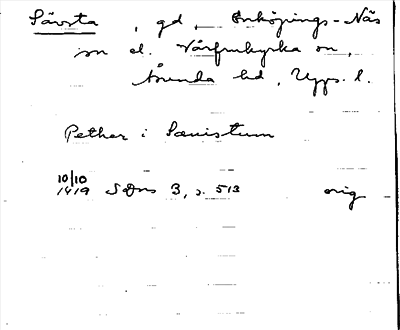 Sävsta, gd, Enköpings-Näs
sn el. Vårfrukyrka sn,
Åsunda hd, Upps. l.
Pether i Sæuistum
10/10
1419 SDns 3, s. 513 orig